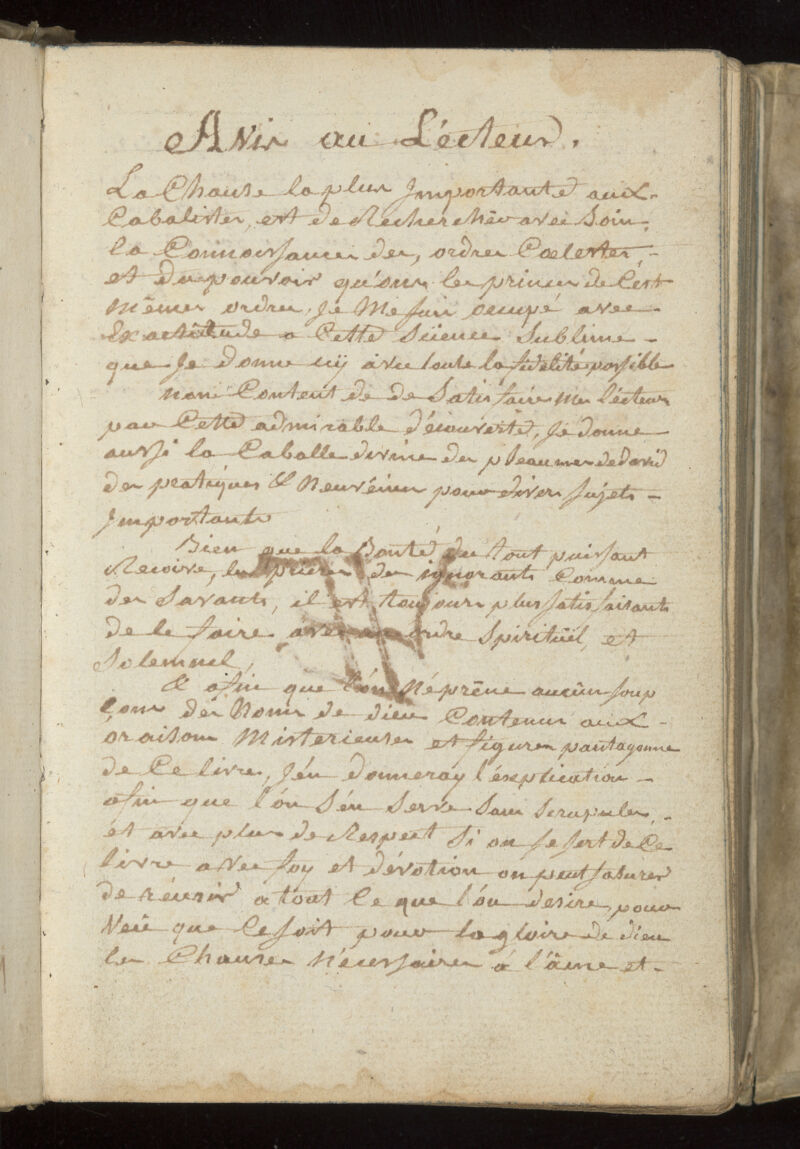 Avis au Lécteur.
La Chause la plus Jmportante aux-
Cabalistes, est de Rechercher avec Soin,
la Connoissance des, ordres Cœlestes,-
et du pouvoir qu'ons les princes de Cest
mêmes ordres, Je Me suis occupé avec-
Exactitude a Cette Sciience Sublime-
que Je donne icy avec toute la fidelité possible
non Content de de Satisfaire Mes Lécteurs
par Cette admirable d'écouverte, Je donne
aussi la Caballe divine des pseaumes de david
des pratiques & Neuvéines pour divers Sujets-
Jmportants
Bien que la Bonté du tout puissant
Recoive, les prieres des ignorants Comme
des Savants, il est toujours plus satisfaisants
de le faire avec un ordre Spirituël, et
Solemnel,
& afin que l'ón Népréne aucûn soup
çons dés Noms de dieu Contenus aux-
oraisons Misterieuses et figures pantagonne
de Ce livre, J'én donneray l'éxplication-
afin que l'ón S'én Serve Sans Scrupules,-
et avec plus de Respect Si on se sert de Ce
livre avec foy et dévotion on peut s'asurer
de réusir a tout Ce que l'ón desire, pour
Veû que Ce soit pour la gloire de dieu
les Chauses Nécessaires á l'âme et-